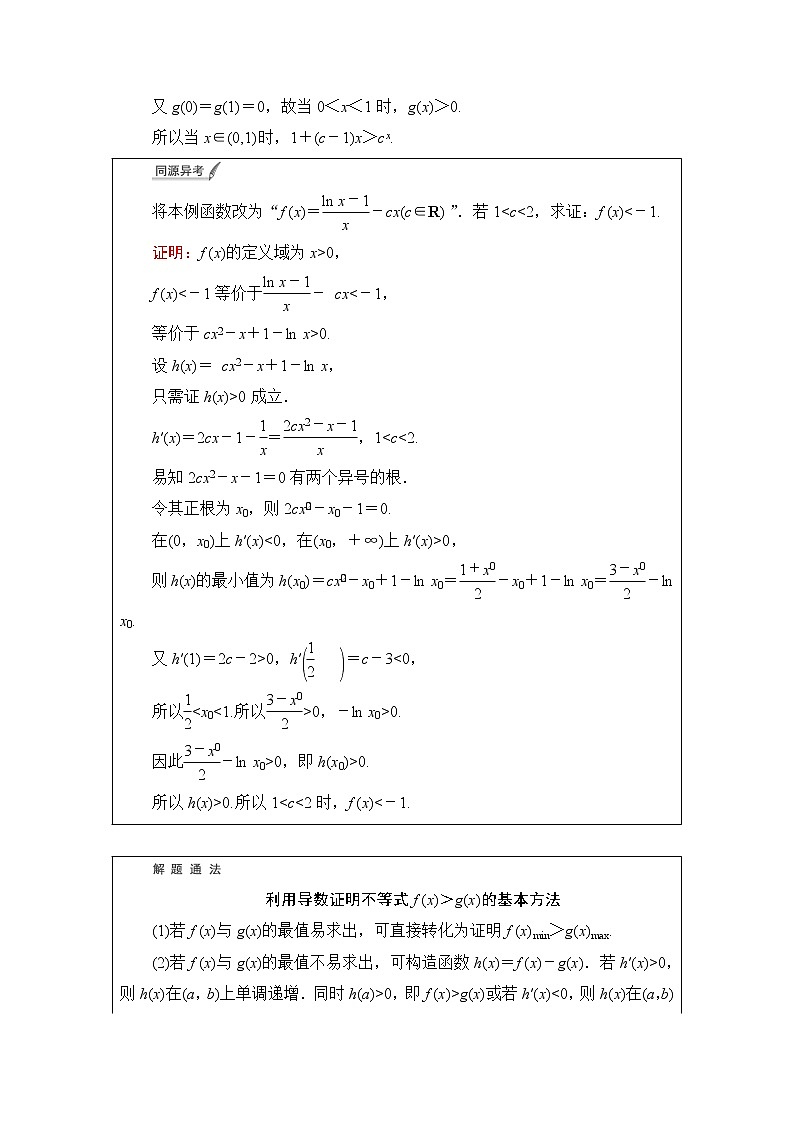 又 g(0)=g(1)=0,故当 0<x<1 时,g(x)>0.
所以当 x∈(0,1)时,1+(c-1)x>cˣ.
同源异考
将本例函数改为“f(x)=\frac{ln x-1}{x}-cx(c∈R)”.若 1<c<2,求证:f(x)<-1.
证明:f(x)的定义域为 x>0,
f(x)<-1 等价于\frac{ln x-1}{x}- cx<-1,
等价于 cx²-x+1-ln x>0.
设 h(x)= cx²-x+1-ln x,
只需证 h(x)>0 成立.
h′(x)=2cx-1-\frac{1}{x}=\frac{2cx²-x-1}{x},1<c<2.
易知 2cx²-x-1=0 有两个异号的根.
令其正根为 x₀,则 2cx₀²-x₀-1=0.
在(0,x₀)上 h′(x)<0,在(x₀,+∞)上 h′(x)>0,
则 h(x)的最小值为 h(x₀)=cx₀²-x₀+1-ln x₀=\frac{1+x₀}{2}-x₀+1-ln x₀=\frac{3-x₀}{2}-ln
x₀.
又 h′(1)=2c-2>0,h′(\frac{1}{2})=c-3<0,
所以\frac{1}{2}<x₀<1.所以\frac{3-x₀}{2}>0,-ln x₀>0.
因此\frac{3-x₀}{2}-ln x₀>0,即 h(x₀)>0.
所以 h(x)>0.所以 1<c<2 时,f(x)<-1.
解 题 通 法
利用导数证明不等式 f(x)>g(x)的基本方法
(1)若 f(x)与 g(x)的最值易求出,可直接转化为证明 f(x)min>g(x)max.
(2)若 f(x)与 g(x)的最值不易求出,可构造函数 h(x)=f(x)-g(x).若 h′(x)>0,
则 h(x)在(a,b)上单调递增.同时 h(a)>0,即 f(x)>g(x)或若 h′(x)<0,则 h(x)在(a,b)